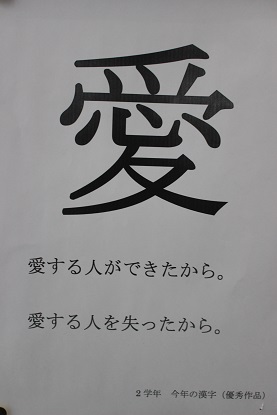 愛
愛する人ができたから。
愛する人を失ったから。
2学年　今年の漢字（優秀作品）